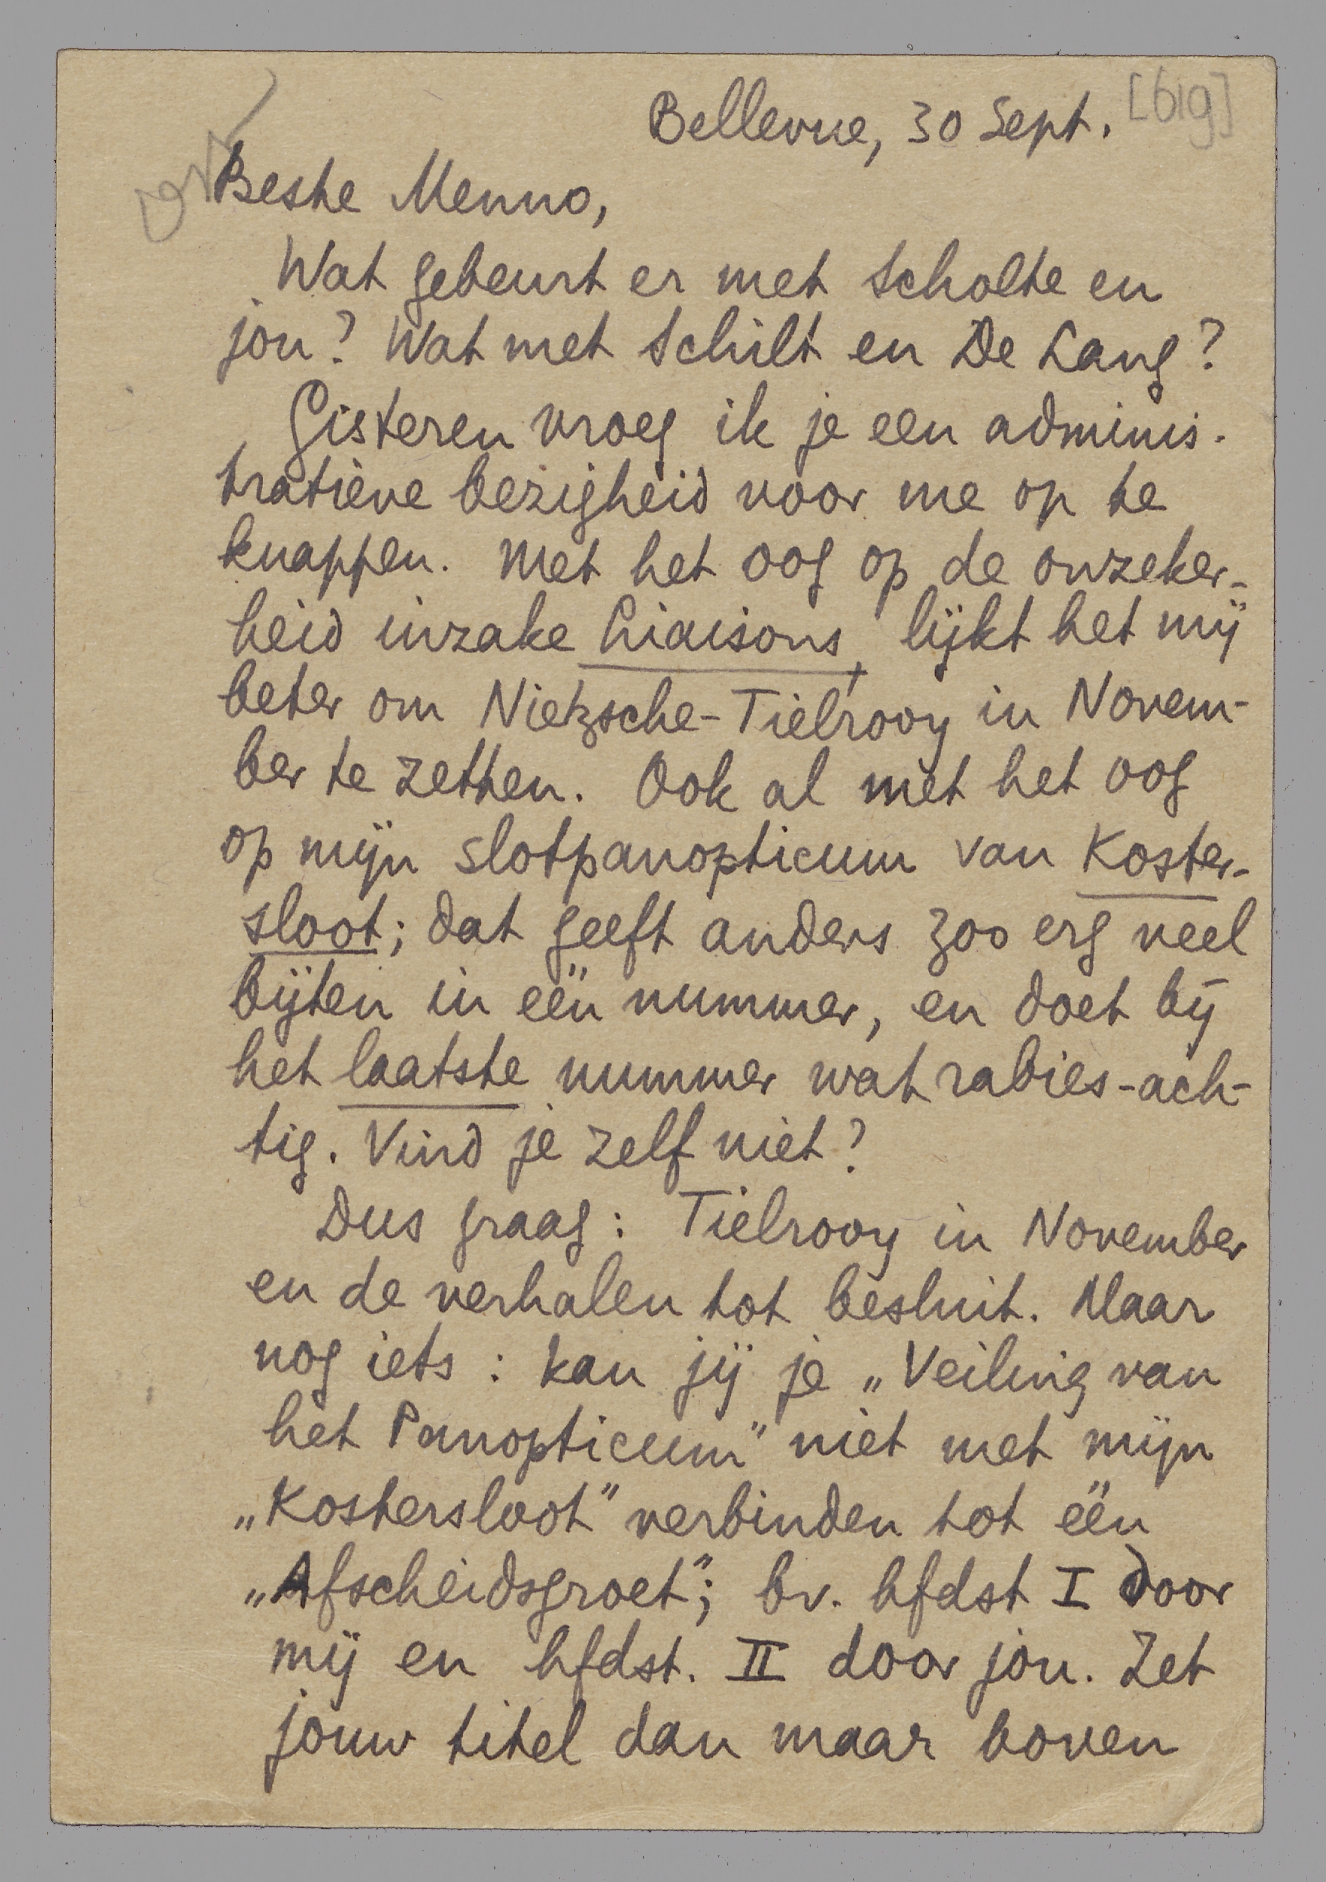 Bellevue, 30 Sept. [619]
Beste Menno,
Wat gebeurt er met Scholte en
jou? Wat met Schilt en De Lang?
Gisteren vroeg ik je een adminis-
tratieve bezigheid voor me op te
knappen. Met het oog op de onzeker-
heid inzake Liaisons, lijkt het mij
beter om Nietzsche-Tielrooy in Novem-
ber te zetten. Ook al met het oog
op mijn slotpanopticum van Koster-
sloot; dat geeft anders zoo erg veel
bijten in één nummer, en doet bij
het laatste nummer wat rabies-ach-
tig. Vind je zelf niet?
Dus graag: Tielrooy in November
en de verhalen tot besluit. Maar
nog iets: kan jij je „Veiling van
het Panopticum” niet met mijn
„Kostersloot” verbinden tot één
„Afscheidsgroet”; bv. hfdst I door
mij en hfdst. II door jou. Zet
jouw titel dan maar boven